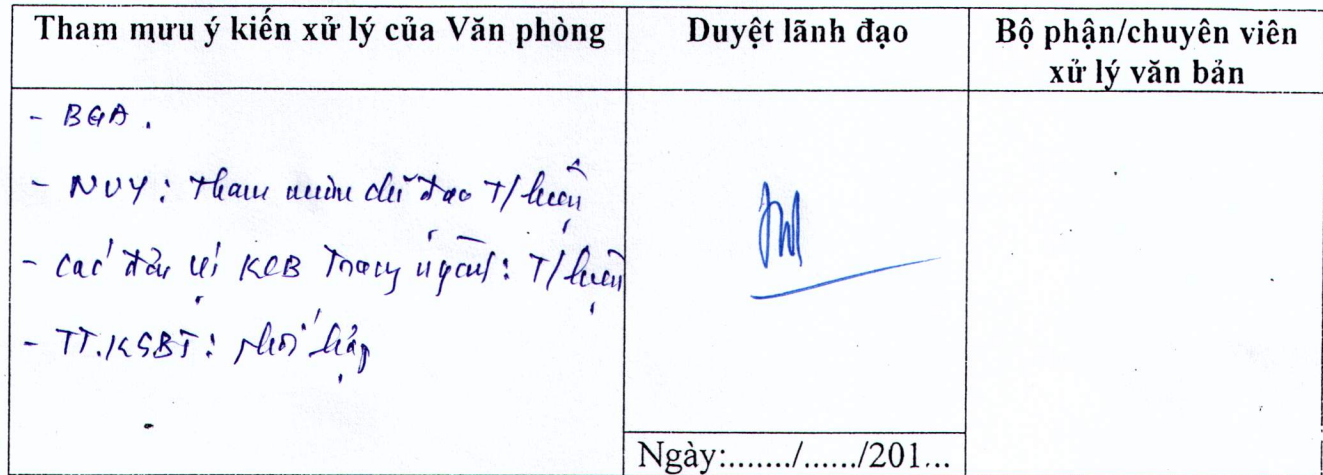 Tham mưu ý kiến xử lý của Văn phòng
Duyệt lãnh đạo
Bộ phận/chuyên viên
xử lý văn bản
- BGĐ.
- NVY: Tham mưu chỉ đạo T/hiện
- Các đơn vị KCB Trong ngành: T/hiện
- TT.KSBT: phối hợp
Ngày:......./....../201...